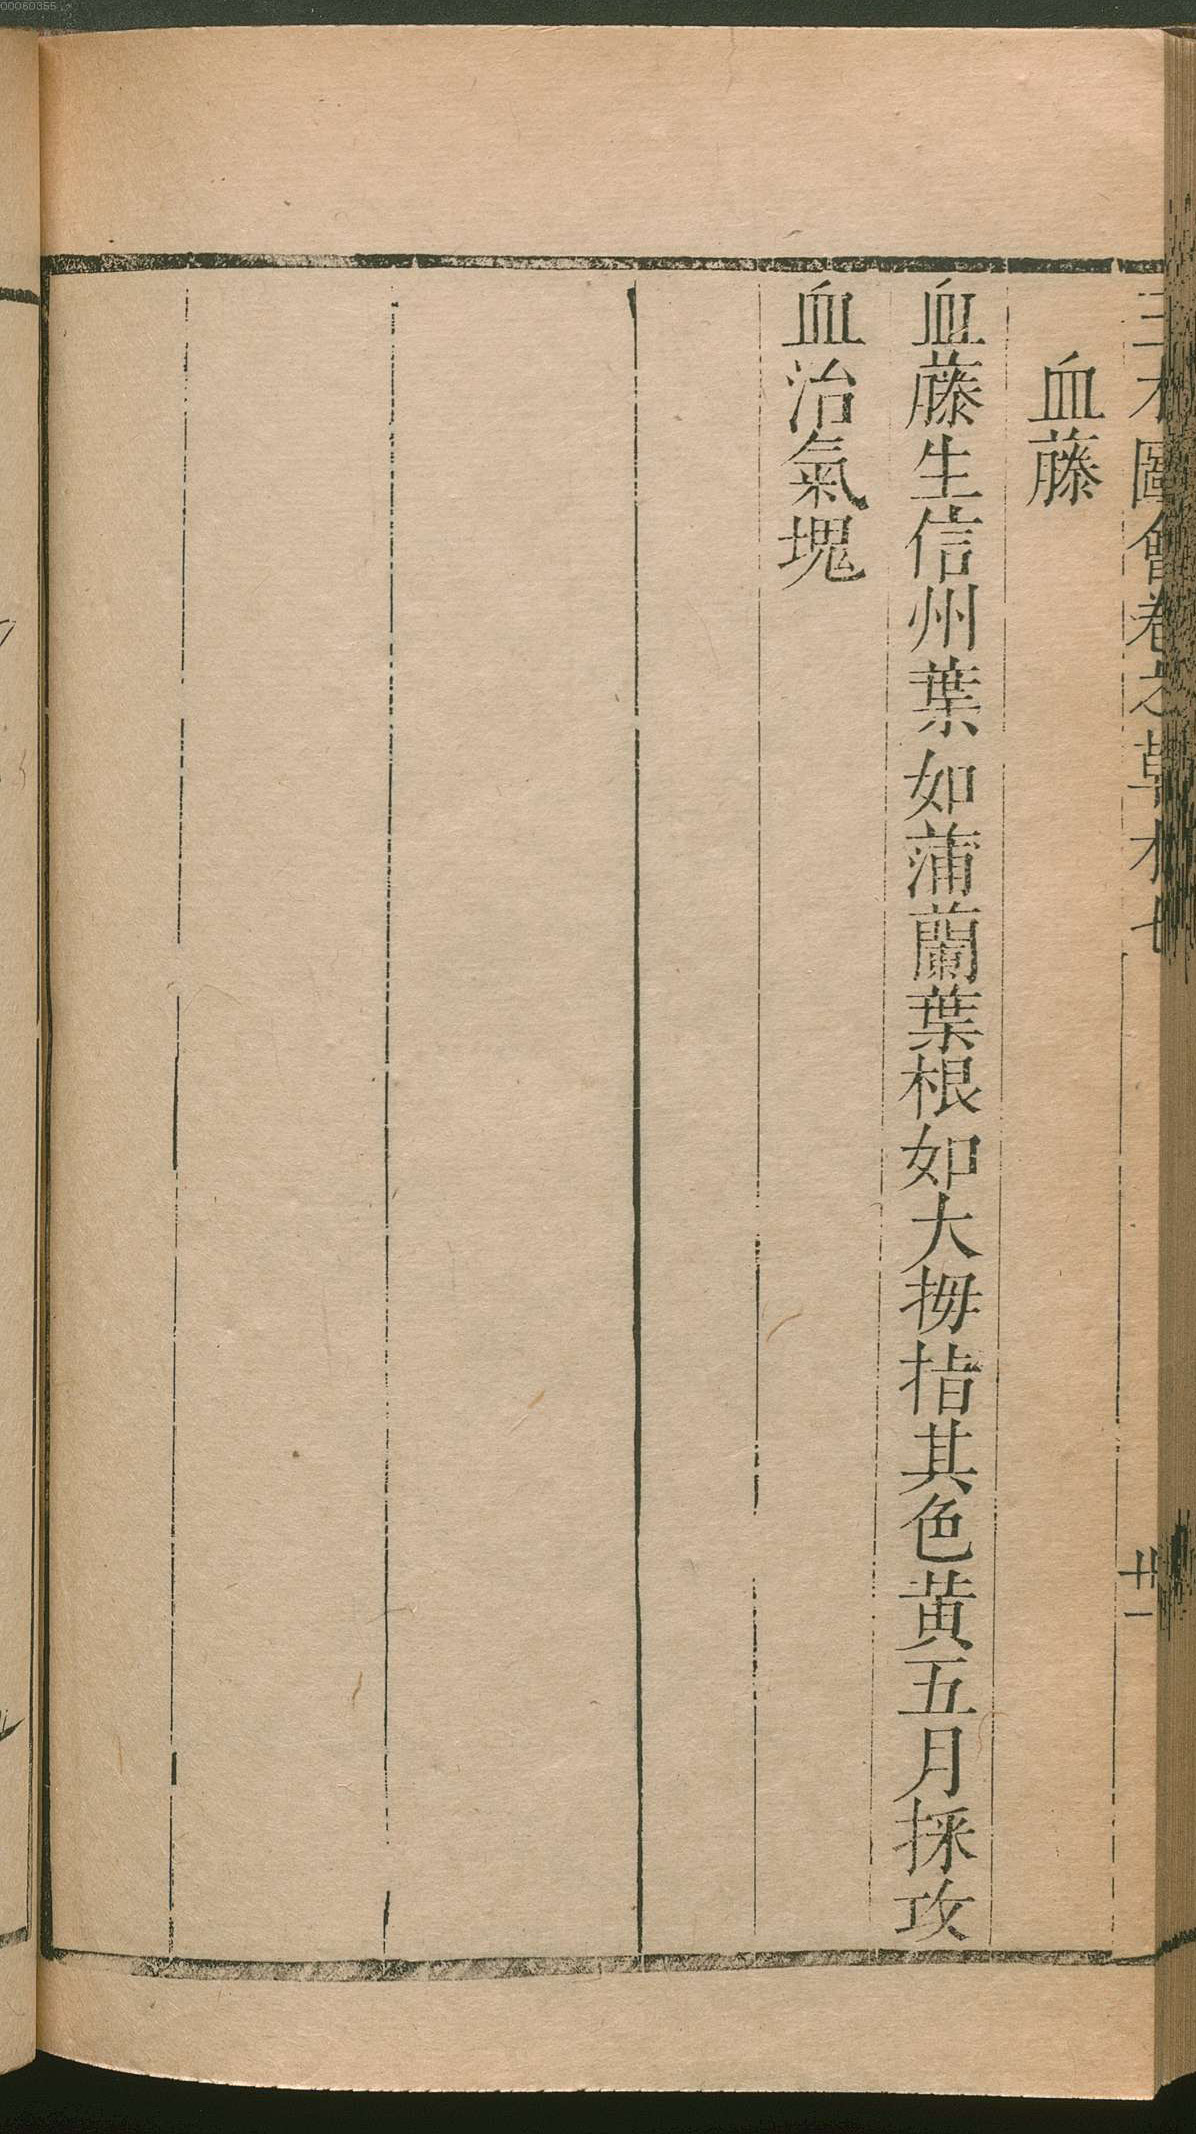 三才圖會卷之草木七
廿一
血藤
血藤生信州葉如蒲蘭葉根如大拇指其色黃五月採攻
血治氣塊
00060355